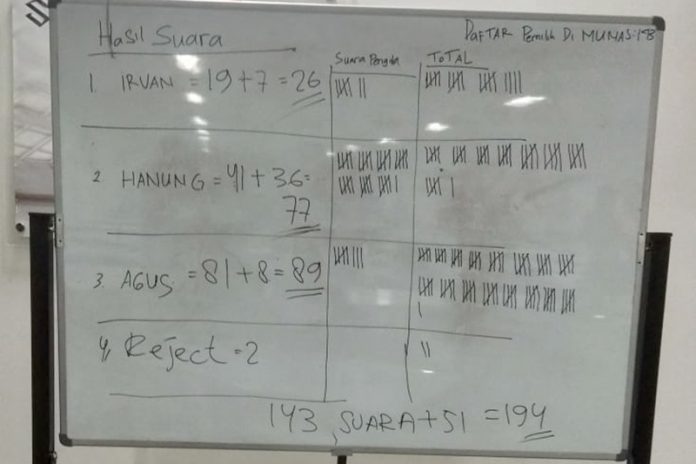 Hasil Suara
DAFTAR Pemilih Di MUNAS:
Suara Pengda
TOTAL
1. IRVAN = 19 + 7 = 26
2 HANUNG = 41 + 36 =
77
3. AGUS = 81 + 8 = 89
4, Reject = 2
143 SUARA + 51 = 194